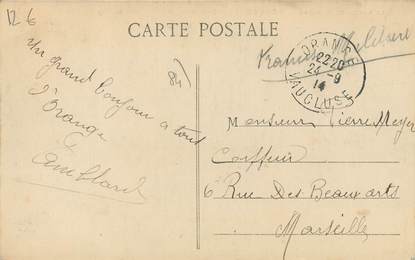 12 €
CARTE POSTALE
Franchise Militaire
ORANGE
22 20
24 - 9
14
VAUCLUSE
84)
Un grand bonjour a tout
d'Orange
Monsieur Pierre Meyer
Coiffeur
6 Rue Des Beaux arts
Marseille